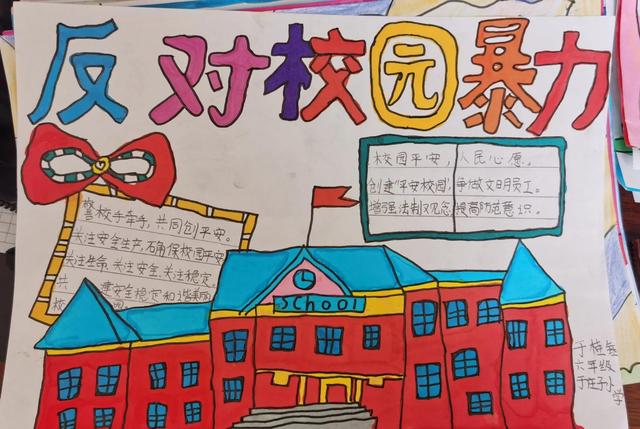 反对校园暴力
校园平安，人民心愿。
创建“平安校园”，争做文明员工。
增强法制观念，提高防范意识。
警校手牵手，共同创平安。
关注安全生产，确保校园平安
关注生命，关注安全，关注稳定。
共建安全稳定和谐美丽
校园
SCHOOL
于
六年级
于庄子小学